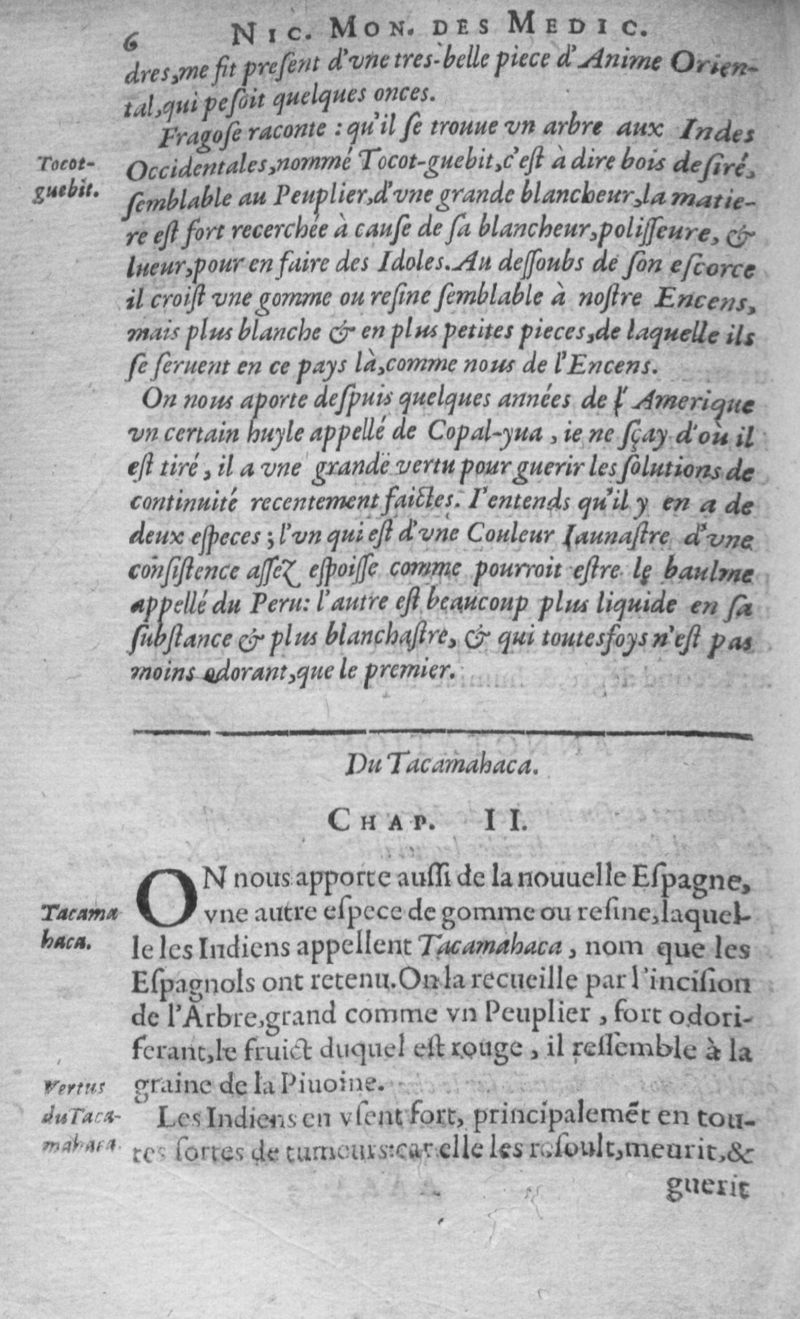 6 NIC. MON. DES MEDIC.
dres, me fit preſent d'vne tres-belle piece d'Anime Orien-
tal, qui peſoit quelques onces.
Fragoſe raconte : qu'il ſe trouue vn arbre aux Indes
Tocot-
guebit.
Occidentales, nommé Tocot-guebit, c'eſt à dire bois deſiré,
ſemblable au Peuplier, d'vne grande blancheur, la matie-
re eſt fort recerchée à cauſe de ſa blancheur, poliſſeure, &
lueur, pour en faire des Idoles. Au deſſoubs de ſon eſcorce
il croiſt vne gomme ou reſine ſemblable à noſtre Encens,
mais plus blanche & en plus petites pieces, de laquelle ils
ſe ſeruent en ce pays là, comme nous de l'Encens.
On nous aporte deſpuis quelques années de l'Amerique
vn certain huyle appellé de Copal-yua, ie ne ſçay d'où il
eſt tiré, il a vne grande vertu pour guerir les ſolutions de
continuité recentement faictes. I'entends qu'il y en a de
deux eſpeces ; l'vn qui eſt d'vne Couleur Iaunaſtre d'vne
conſiſtence aſſez eſpoiſſe comme pourroit eſtre le baulme
appellé du Peru: l'autre eſt beaucoup plus liquide en ſa
ſubſtance & plus blanchaſtre, & qui toutesfoys n'eſt pas
moins odorant, que le premier.
Du Tacamahaca.
CHAP. II.
ON nous apporte auſſi de la nouuelle Eſpagne,
Tacama
haca.
vne autre eſpece de gomme ou reſine, laquel-
le les Indiens appellent Tacamahaca, nom que les
Eſpagnols ont retenu. On la recueille par l'inciſion
de l'Arbre, grand comme vn Peuplier, fort odori-
ferant, le fruict duquel eſt rouge, il reſſemble à la
graine de la Piuoine.
Vertus
du Taca-
mahaca.
Les Indiens en vſent fort, principalemẽt en tou-
tes ſortes de tumeurs: car elle les reſoult, meurit, &
guerit